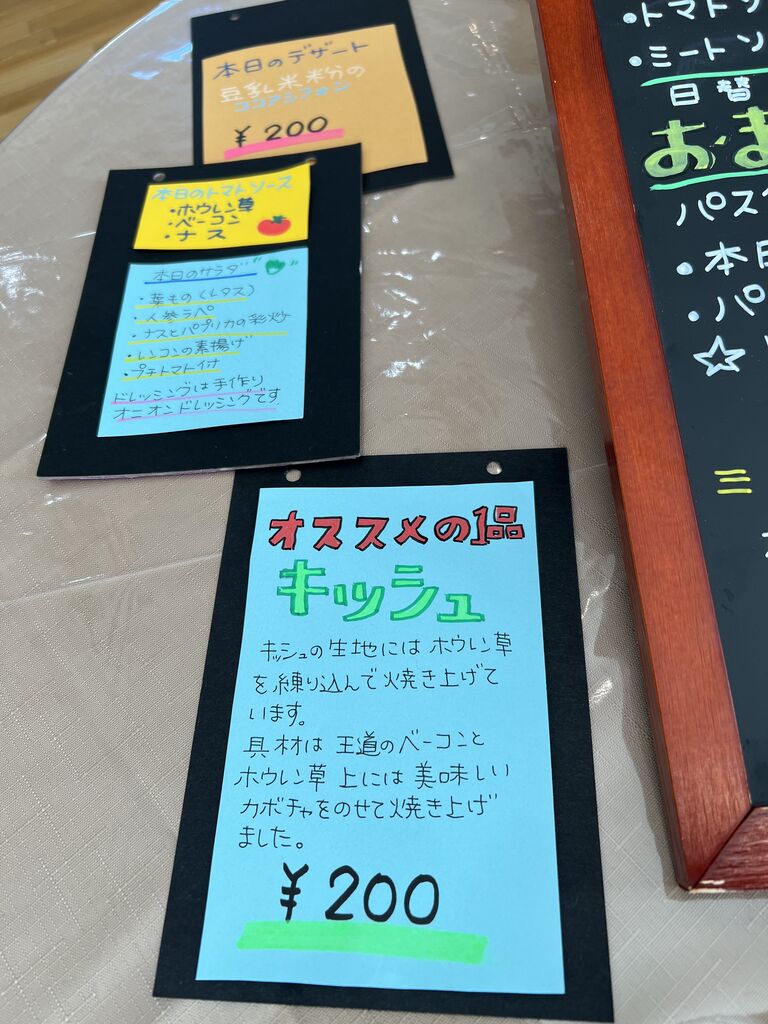 本日のデザート
豆乳米粉の
ココアシフォン
¥200
本日のトマトソース
・ホウレン草
・ベーコン
・ナス
本日のサラダ
・葉もの(レタス)
・人参ラペ
・ナスとパプリカの彩炒
・レンコンの素揚げ
・プチトマト付
ドレッシングは手作り
オニオンドレッシングです
オススメの1品
キッシュ
キッシュの生地にはホウレン草
を練り込んで焼き上げて
います。
具材は王道のベーコンと
ホウレン草 上には美味しい
カボチャをのせて焼き上げ
ました。
¥200
・トマトソ
・ミートソ
日替
お・ま
パスタ
・本日
・パ
☆
三